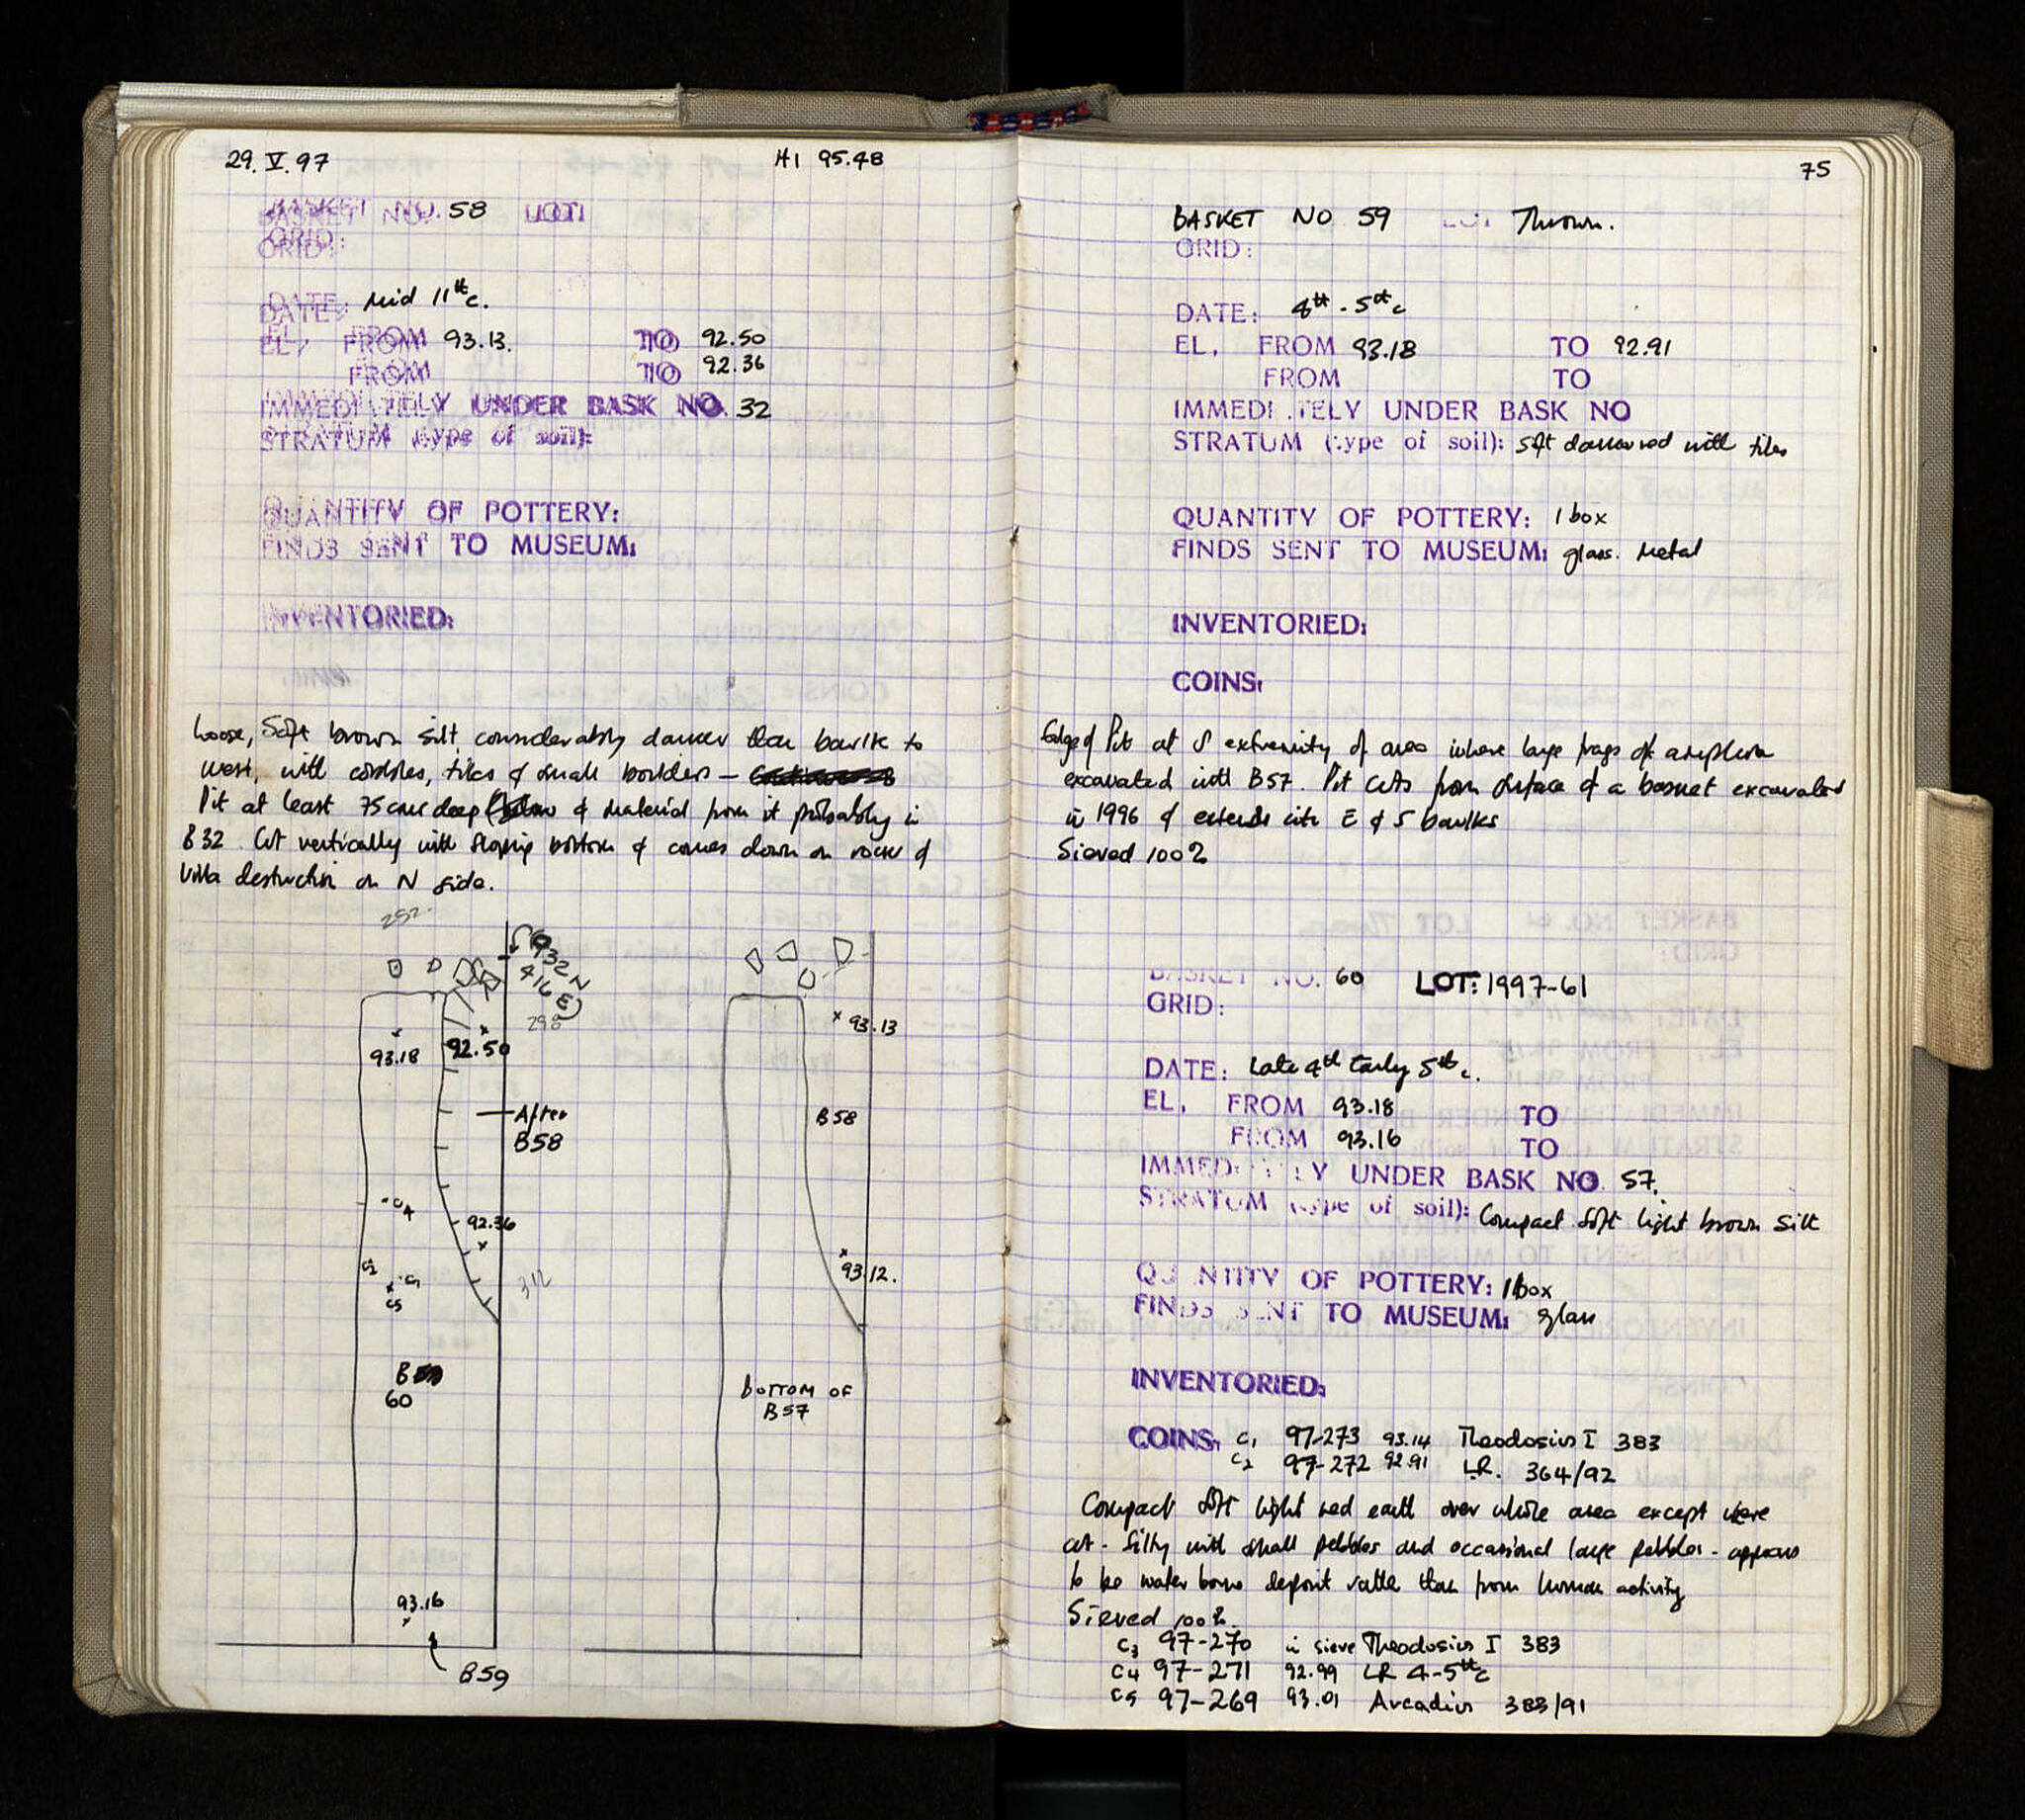 29.V.97 HI 95.48
BASKET NO. 58 LOT:
GRID:
DATE: Mid 11th c.
EL, FROM 93.13. TO 92.50
FROM TO 92.36
IMMEDIATELY UNDER BASK NO. 32
STRATUM (type of soil):
QUANTITY OF POTTERY:
FINDS SENT TO MUSEUM:
INVENTORIED:
Loose, Soft brown silt, considerably darker than baulk to
west, with cobbles, tiles & small boulders –
Pit at least 75 cms deep & material from it probably in
B32. Cut vertically with sloping bottom & comes down on rocks of
Villa destruction on N side.
252.
932 N
416 E
298
93.18 92.50
After
B58
C4
92.36
C2 C1
C5
312
B
60
93.16
B59
93.13
B58
93.12.
BOTTOM OF
B57
75
BASKET NO 59 LOT Thrown.
GRID:
DATE: 4th - 5th c
EL, FROM 93.18 TO 92.91
FROM TO
IMMEDIATELY UNDER BASK NO
STRATUM (type of soil): Soft dark red with tiles
QUANTITY OF POTTERY: 1 box
FINDS SENT TO MUSEUM: glass. Metal
INVENTORIED:
COINS:
Edge of Pit at S extremity of area where large frags of amphora
excavated with B57. Pit cuts from surface of a basket excavated
in 1996 & extends into E & S baulks
Sieved 100%
BASKET NO. 60 LOT: 1997-61
GRID:
DATE: Late 4th Early 5th c.
EL, FROM 93.18 TO
FROM 93.16 TO
IMMEDIATELY UNDER BASK NO 57.
STRATUM (type of soil): Compact soft light brown silt
QUANTITY OF POTTERY: 1 box
FINDS SENT TO MUSEUM: glass
INVENTORIED:
COINS: C1 97-273 93.14 Theodosius I 383
C2 97-272 92.91 LR. 364/92
Compact soft light red earth over whole area except where
cut - Silty with small pebbles and occasional large pebbles - appears
to be water borne deposit rather than from human activity
Sieved 100%.
C3 97-270 in sieve Theodosius I 383
C4 97-271 92.99 LR 4-5th c
C5 97-269 93.01 Arcadius 383/91